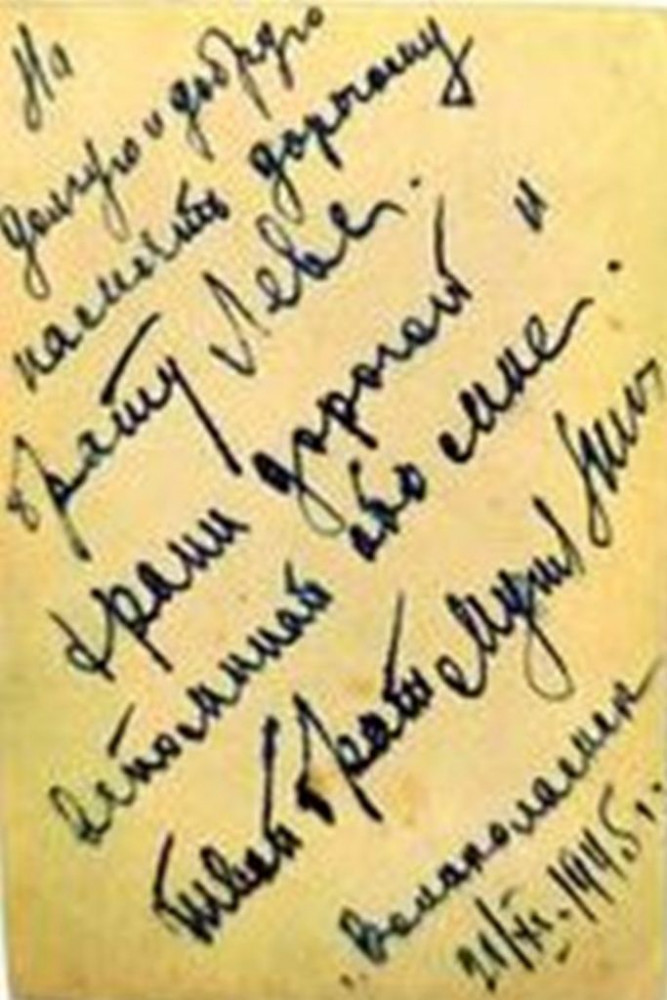 На
долгую и добрую
память дорогому
брату Леве.
храни дорогой и
вспоминай обо мне.
твой брат
Волоколамск
21/XI-1945 г.